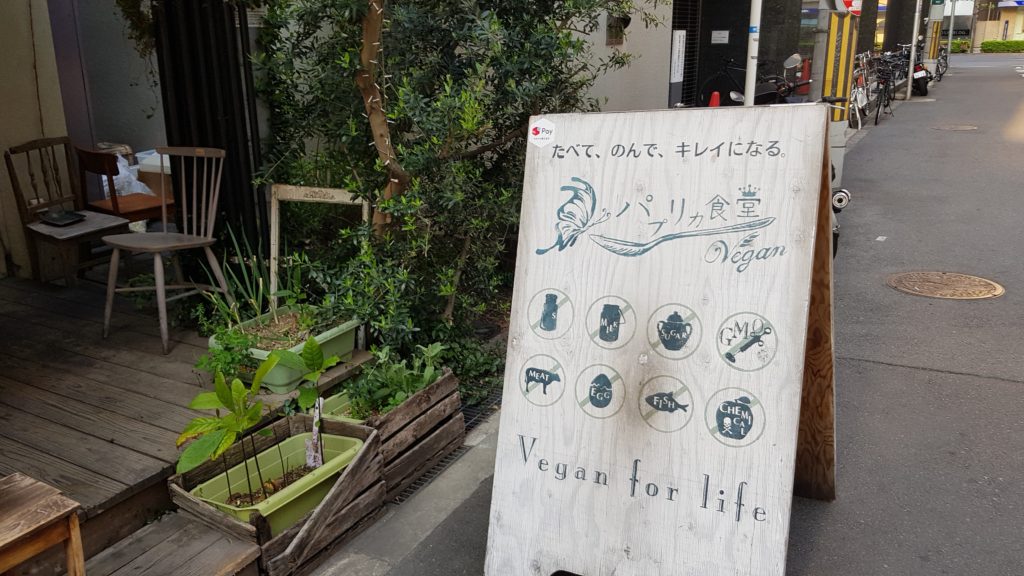 Pay
たべて、のんで、キレイになる。
パプリカ食堂
Vegan
S
MILK
SUGAR
GMO
MEAT
EGG
FISH
CHEMICAL
Vegan for life